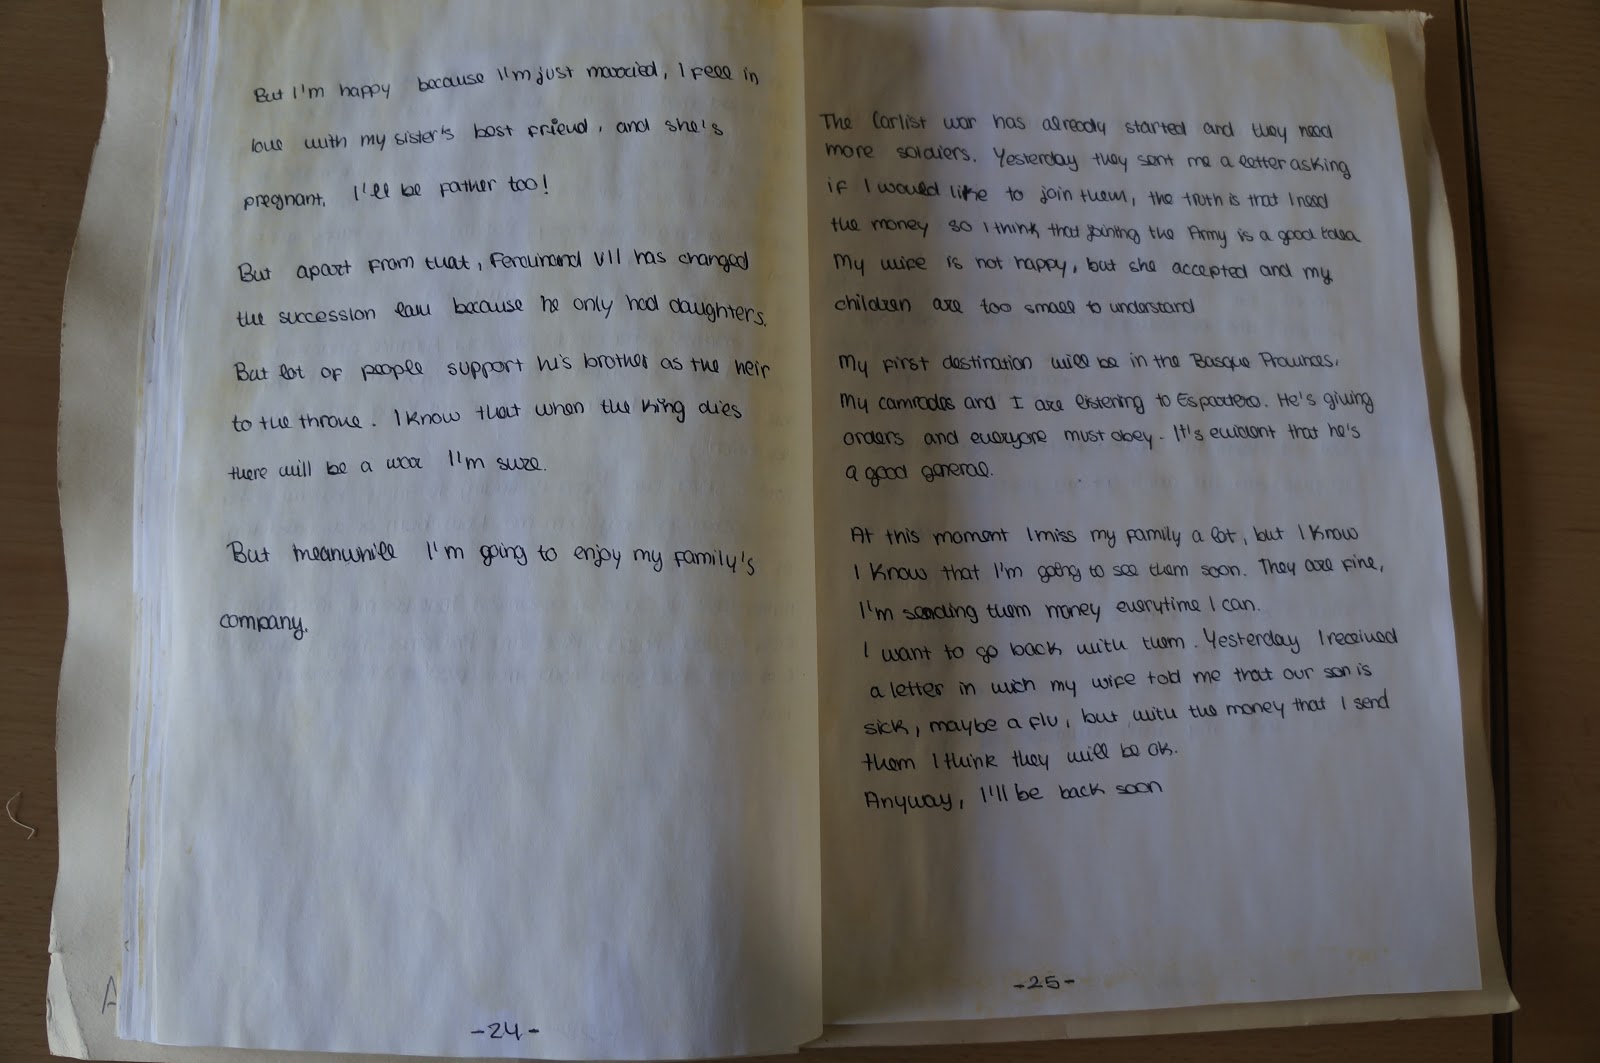 But I'm happy because I'm just married, I feel in
love with my sister's best friend, and she's
pregnant. I'll be father too!
But apart from that, Ferdinand VII has changed
the succession law because he only had daughters.
But lot of people support his brother as the heir
to the throne. I know that when the king dies
there will be a war I'm sure.
But meanwhile I'm going to enjoy my family's
company.
-24-
The Carlist war has already started and they need
more soldiers. Yesterday they sent me a letter asking
if I would like to join them, the truth is that I need
the money so I think that joining the Army is a good idea
My wife is not happy, but she accepted and my
children are too small to understand
My first destination will be in the Basque Provinces.
My camrades and I are listening to Espartero. He's giving
orders and everyone must obey. It's evident that he's
a good general.
At this moment I miss my family a lot, but I know
I know that I'm going to see them soon. They are fine,
I'm sending them money everytime I can.
I want to go back with them. Yesterday I received
a letter in wich my wife told me that our son is
sick, maybe a flu, but with the money that I send
them I think they will be ok.
Anyway, I'll be back soon
-25-
A